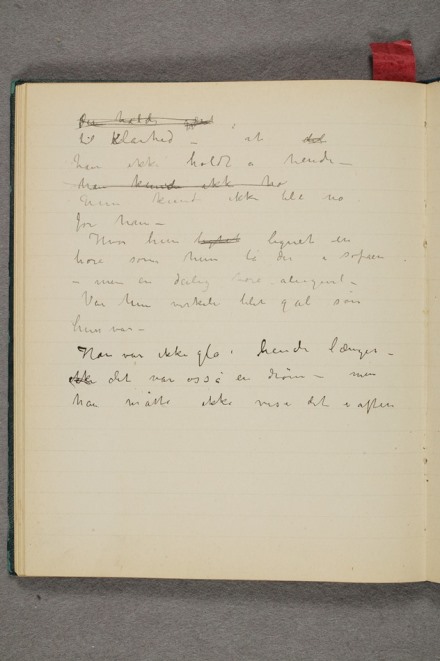 til Klarhed – at
han ikke holdt a hende –
han kunde ikke
kunde ikke bli no
for ham –
Hvor hun lignet en
hore som hun lå der i sofaen
– men en deilig hore alligevel –
Var hun virkelig blit gal som
hun var –
Han var ikke gla i hende længer –
det var også en drøm – men
han måtte ikke vise det i aften